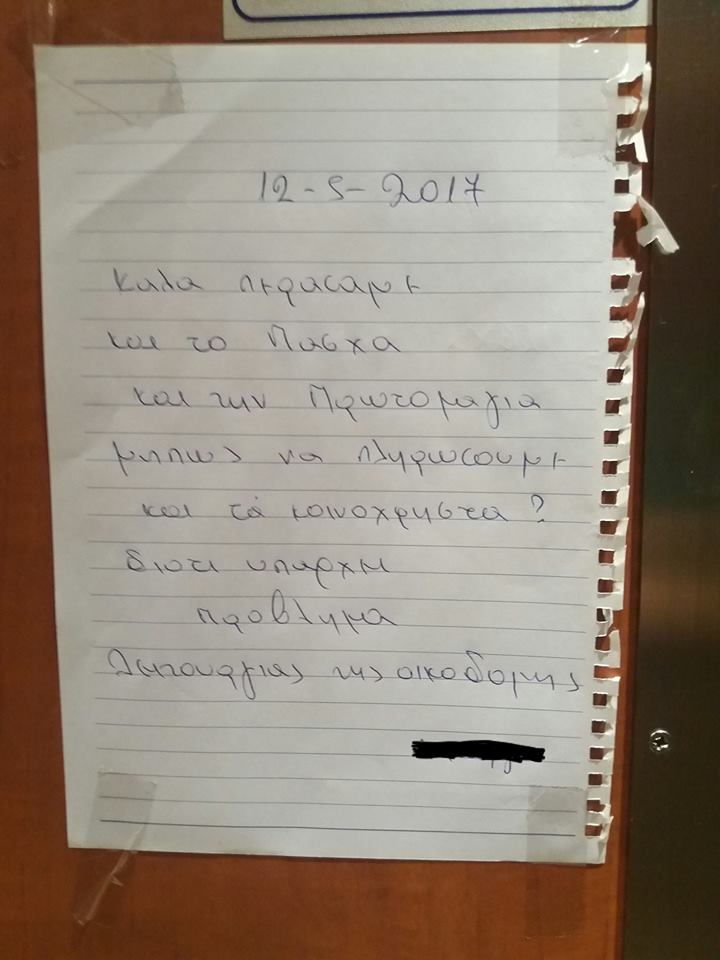 12-5-2017
καλα περασαμε
και το Πασχα
και την Πρωτομαγια
μηπως να πληρωσουμε
και τά κοινοχρηστα?
διοτι υπαρχει
προβλημα
λειτουργιας της οικοδομης